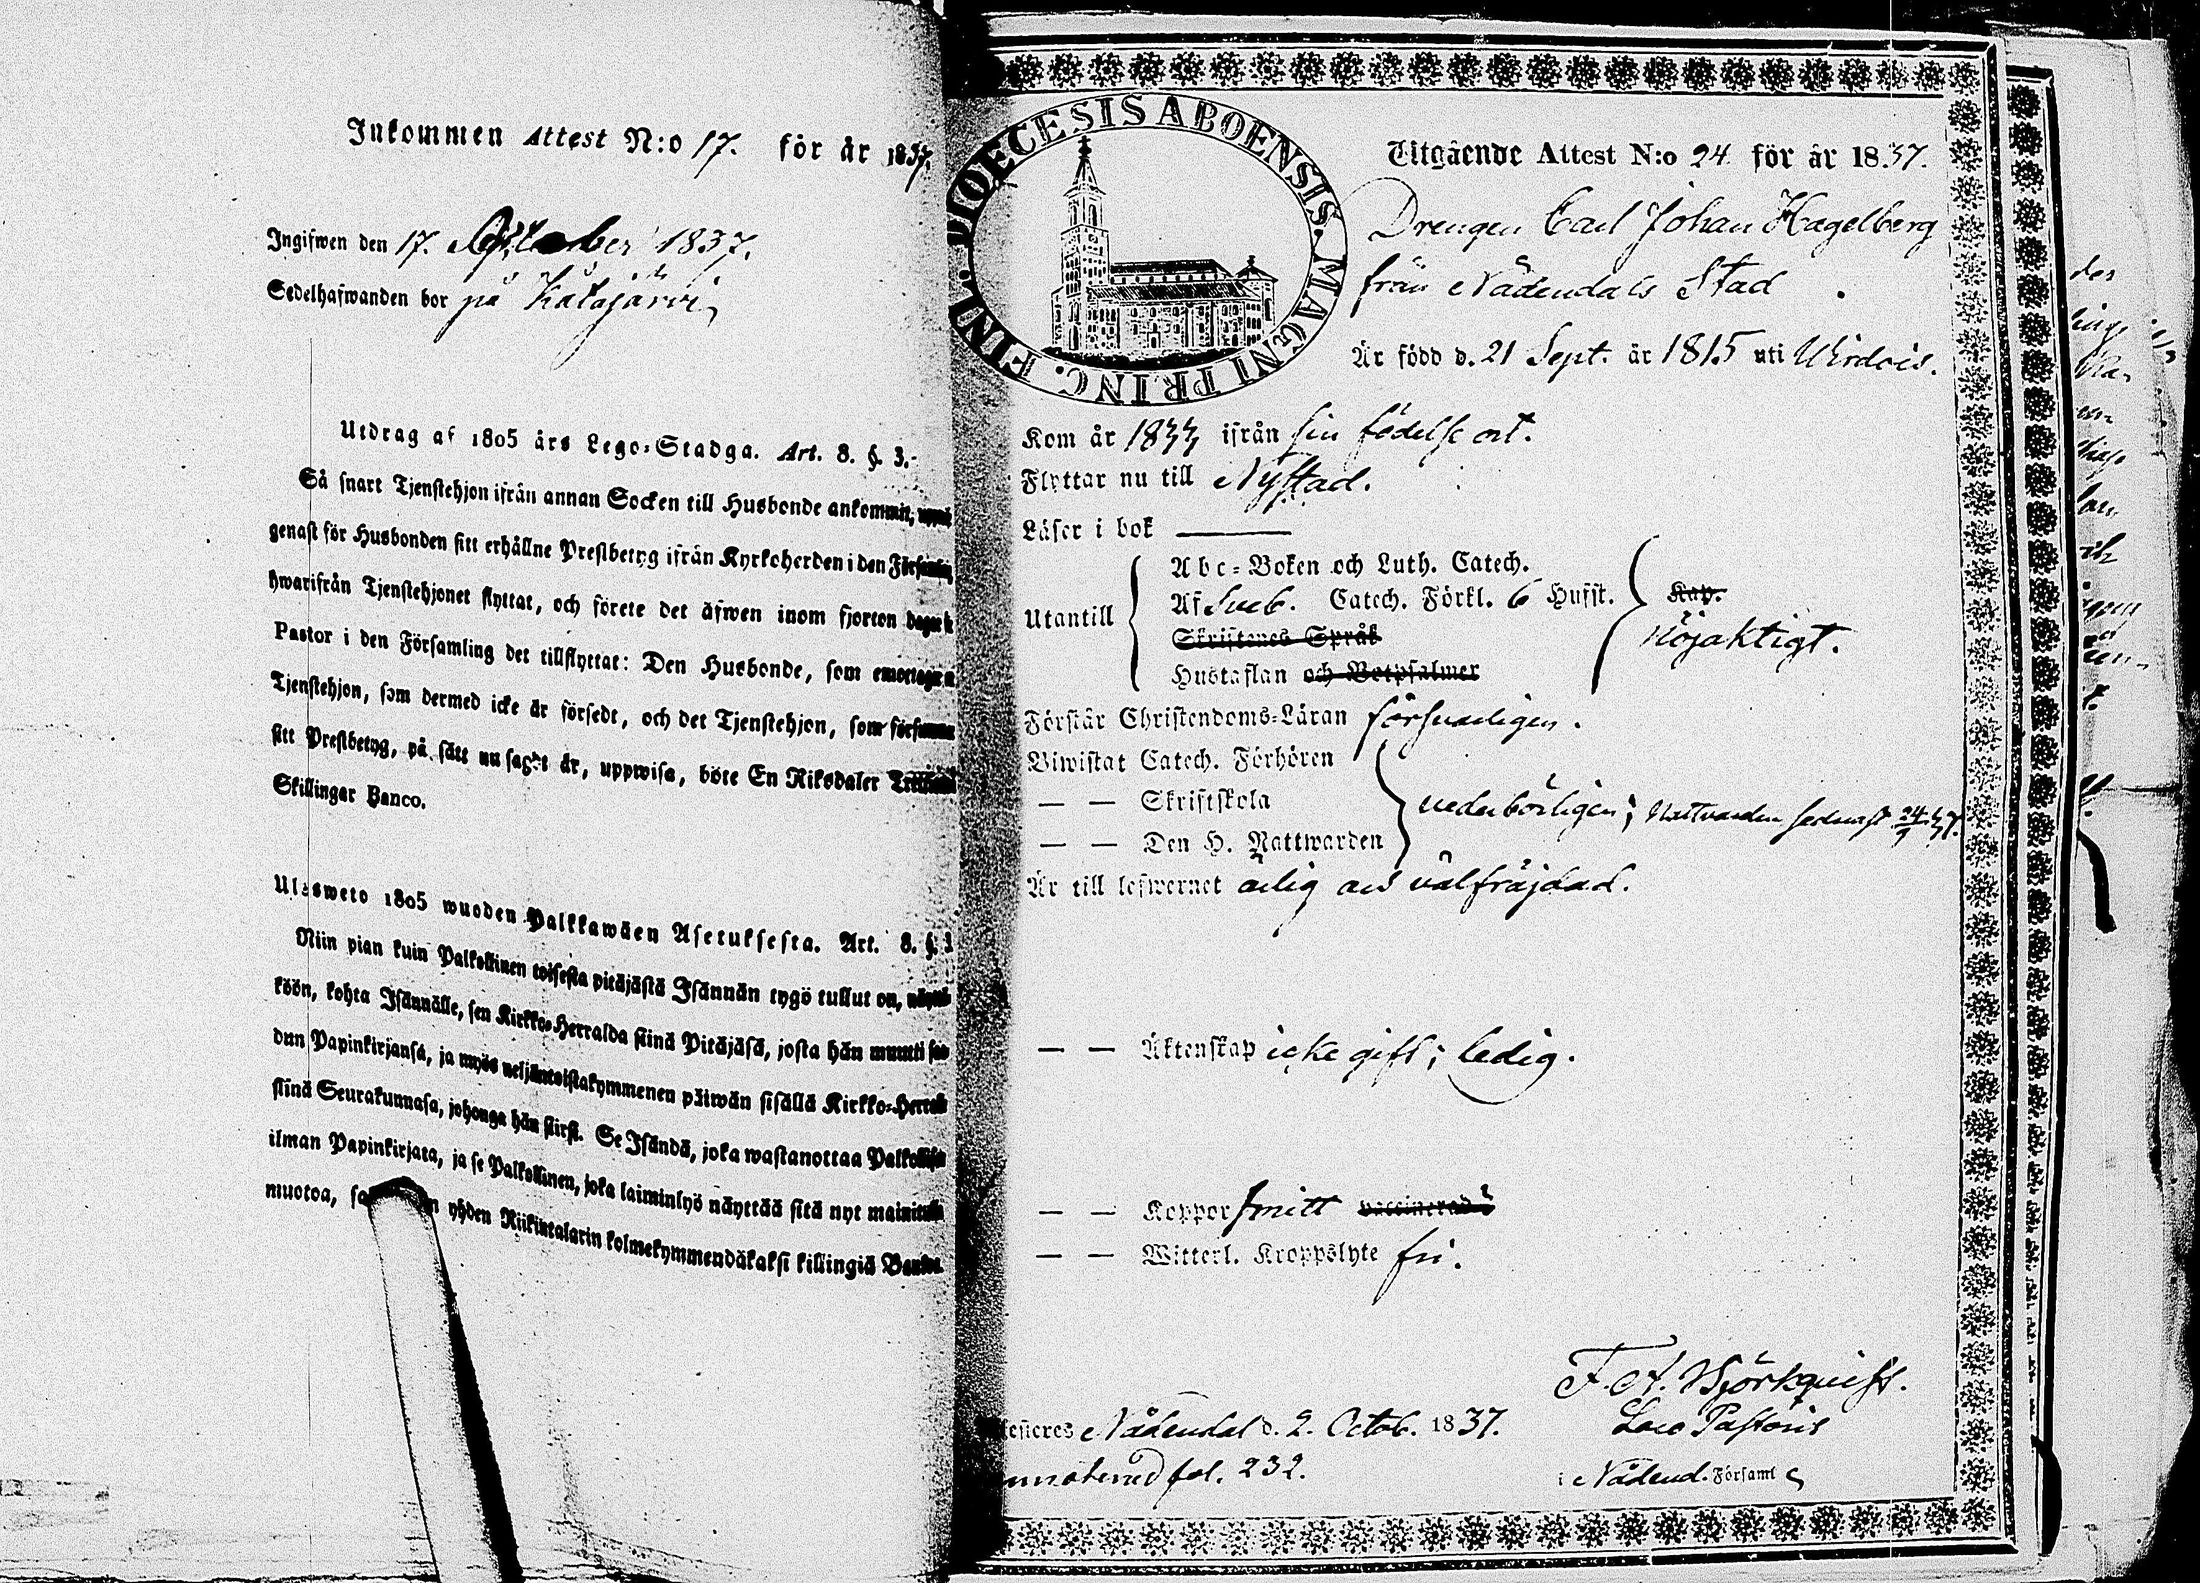 Inkommen Attest N:o 17. för år 1837.
Ingifwen den 17. October 1837.
Sedelhafwanden bor på Katajärvi
Utdrag af 1805 års Lego-Stadga. Art. 8. §. 3.
Så snart Tjenstehjon ifrån annan Socken till Husbonde ankommit,
genast för Husbonden sitt erhållne Prestbetyg ifrån Kyrkoherden i den
hwarifrån Tjenstehjonet flyttat, och förete det äfwen inom fjorton
Pastor i den Församling det tillflyttat: Den Husbonde, som
Tjenstehjon, som dermed icke är försedt, och det Tjenstehjon, som
sitt Prestbetyg, på sätt nu sagdt är, uppwisa, böte En Riksdaler
Skillingar Banco.
Ulosweto 1805 wuoden Palkkawäen Asetuksesta. Art. 8. §. 3
Niin pian kuin Palkollinen toisesta pitäjästä Isännän tygö tullut on,
köön, kohta Isännälle, sen Kirkko-Herralda siinä Pitäjäsä, josta hän muutti saa
dun Papinkirjansa, ja myös neljäntoistakymmenen päiwän sisällä Kirkko-
siinä Seurakunnasa, johonga hän siirsi. Se Isändä, joka wastanottaa
ilman Papinkirjata, ja se Palkollinen, joka laiminlyö näyttää sitä nyt
muotoa, yhden Riikintalarin kolmekymmendäkaksi killingiä
DIOECESIS ABOENSIS. MAGNI PRINC. FINL.
Utgående Attest N:o 24 för år 1837.
Drengen Carl Johan Hagelberg
från Nådendals Stad
Är född d. 21 Sept. år 1815 uti Wirdois.
Kom år 1833 ifrån sin födelse ort.
Flyttar nu till Nystad.
Läser i bok ———
Utantill
Abc-Boken och Luth. Catech.
Af Sveb. Catech. Förkl. 6 Hufst.
Skriftenes Språk
Hustaflan och Botpsalmer
Kap.
nöjaktigt.
Förstår Christendoms-Läran försvarligen.
Biwistat Catech. Förhören
— — Skriftskola
— — Den H. Nattwarden
vederbörligen; Nattvarden sednast 24/9 37.
Är till lefwernet ärlig och välfräjdad.
— — Äktenskap icke gift; ledig.
— — Koppor smitt vaccinerad
— — Witterl. Kroppslyte fri.
F. A. Björkqvist.
Loco Pastoris
i Nådend. Församl
Attesteres Nådendal d. 2. Octob. 1837.
fol. 232.